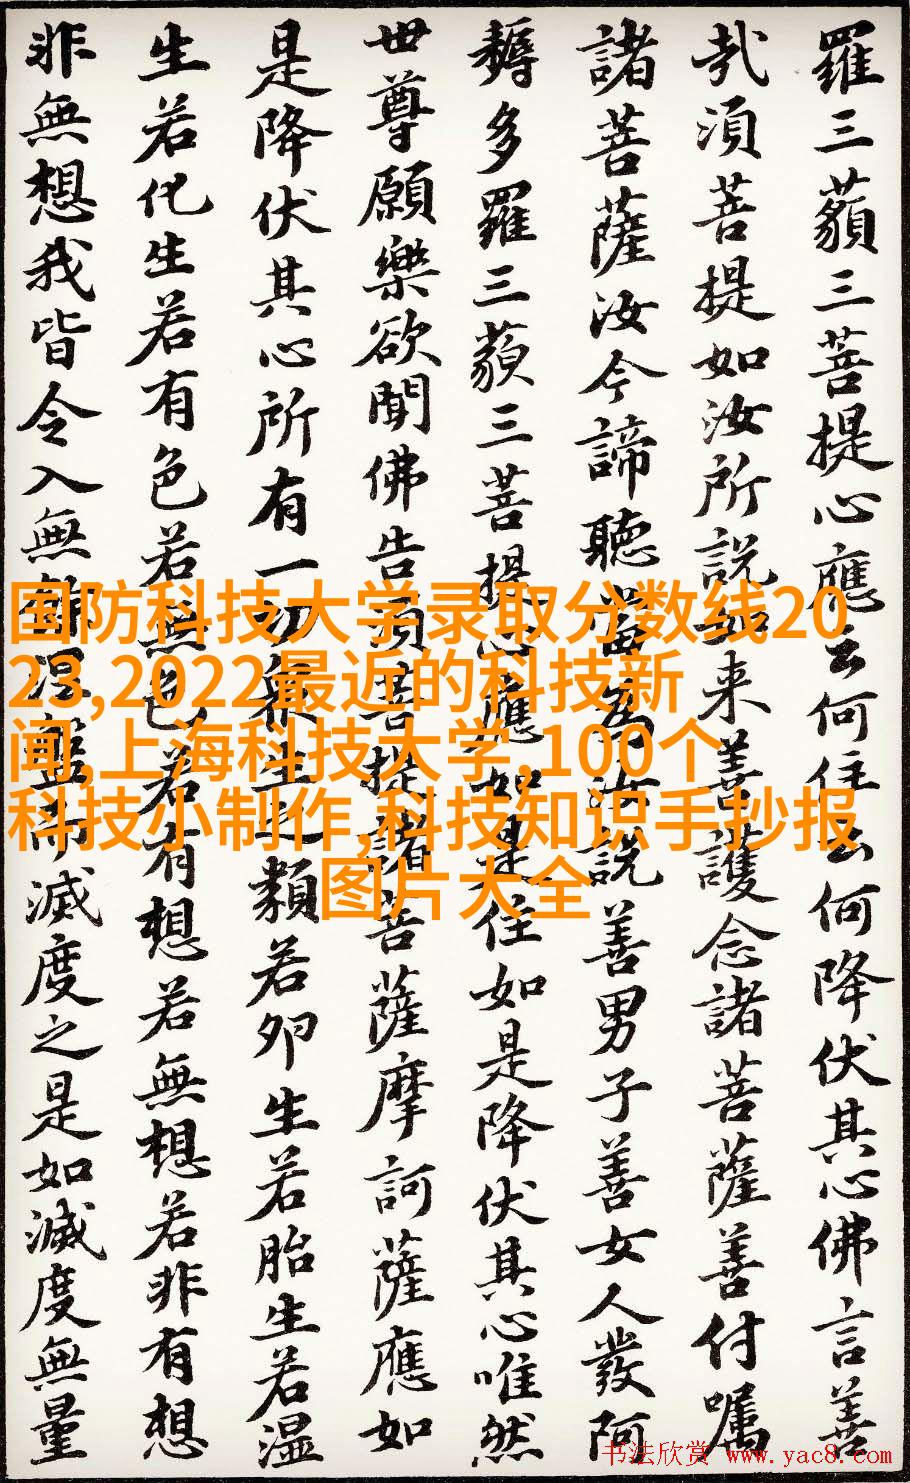 羅三藐三菩提心應云何住云何降伏其心佛言善
哉須菩提如汝所說如来善護念諸菩薩善付囑
諸菩薩汝今諦聽當為汝說善男子善女人發阿
耨多羅三藐三菩提心應如是住如是降伏其心唯然
世尊願樂欲聞佛告須菩提諸菩薩摩訶薩應如
是降伏其心所有一切衆生之類若卵生若胎生若湿
生若化生若有色若無色若有想若無想若非有想
非無想我皆令入無餘涅槃而滅度之是如滅度無量
国防科技大学录取分数线20
23,2022最近的科技新
闻,上海科技大学,100个
科技小制作,科技知识手抄报
图片大全
书法欣赏 www.yac8.com